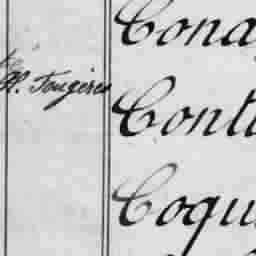 Cona
P. Fougères
Conte
Coqu